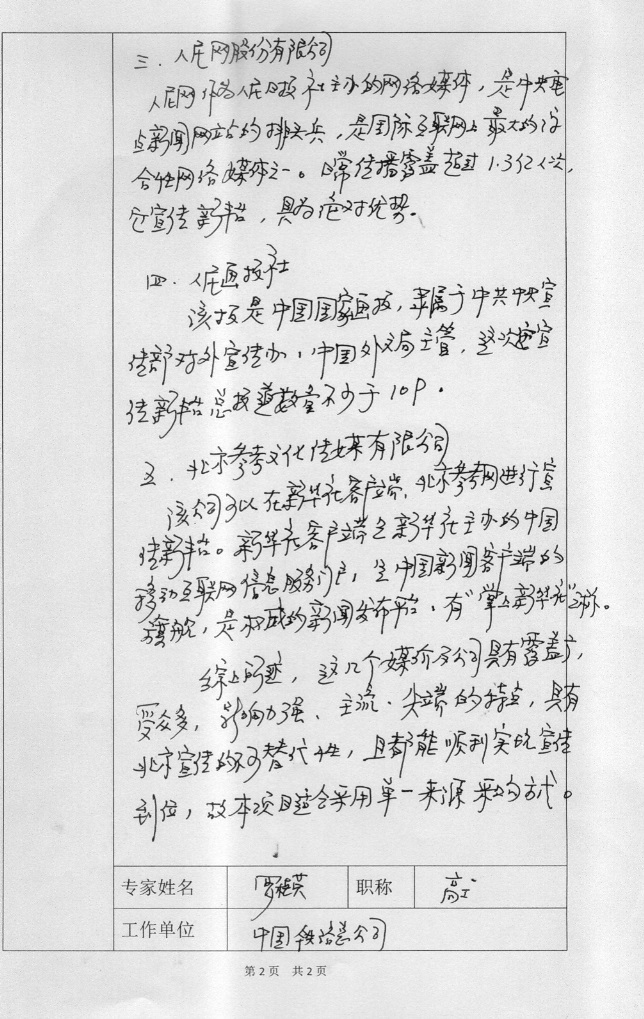 三、人民网股份有限公司
人民网作为人民日报社主办的网络媒体，是中央重
点新闻网站的排头兵，是国际互联网上最大的综
合性网络媒体之一。日常传播覆盖超过1.3亿人次，
它宣传新，具为绝对优势。
四、人民画报社
该报是中国国家画报，隶属于中共中央宣
传部对外宣传办，中国外文局主管，这次宣
传新总报道数量不少于10P。
五、北京参考文化传媒有限公司
该公司可以在新华社客户端、北京参考网进行宣
传新。新华社客户端是新华社主办的中国
移动互联网信息服务门户，是中国新闻客户端的
旗舰，是权威的新闻发布平台，有"掌上新华社"之称。
综上所述，这几个媒介及公司具有覆盖广，
受众多，影响力强、主流、尖端的特点，具有
北京宣传的不可替代性，且都能顺利实现宣传
到位，故本项目适合采用单一来源采购方式。
专家姓名 职称 高工
工作单位 中国铁路总公司
第2页 共2页